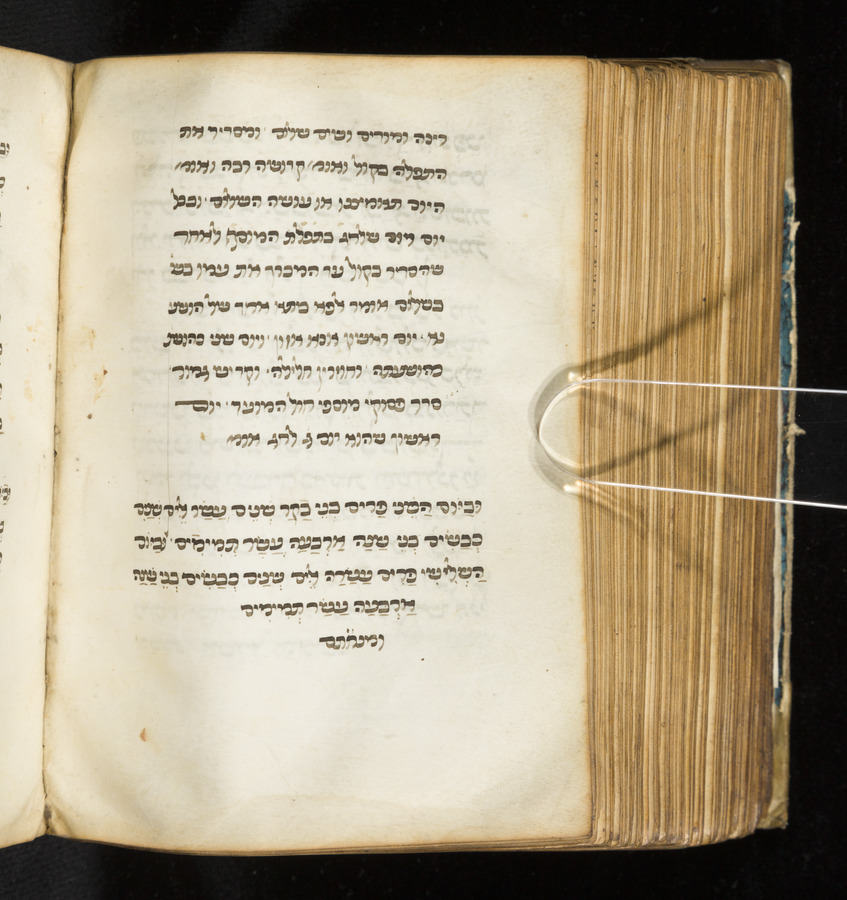 רינה ומורים ושים שלום ׳ ומסדיר את
התפלה בקול ואומ׳ קדושה רבה ואומ׳
היום תאמיצנו או עושה השלום ׳ ובכל
יום מיום שלהג בתפלת המוסף לאחר
שהסדיר בקול עד המברך את עמו בש׳
בשלום אומר לפא ביתא אחד של הושע
נא ׳ יום ראשון אנא אזון ׳ ויום שני כהושעת
כהושענתה ׳ וחוזרין חלילה ׳ וקדיש גמור ׳
סדר פסוקי מוספי חול המועד ׳ יום
ראשון שהוא יום ג לחג אומ׳
וּבַיּוֹם הַשֵּׁנִי פָּרִים בְּנֵי בָקָר שְׁנֵים עָשָׂר אֵילִם שְׁנַיִם
כְּבָשִׂים בְּנֵי שָׁנָה אַרְבָּעָה עָשָׂר תְּמִימִים ׳ וּבַיּוֹם
הַשְּׁלִישִׁי פָּרִים עַשְׁתֵּי אֵילִם שְׁנַיִם כְּבָשִׂים בְּנֵי שָׁנָה
אַרְבָּעָה עָשָׂר תְּמִימִים
ומנחתם